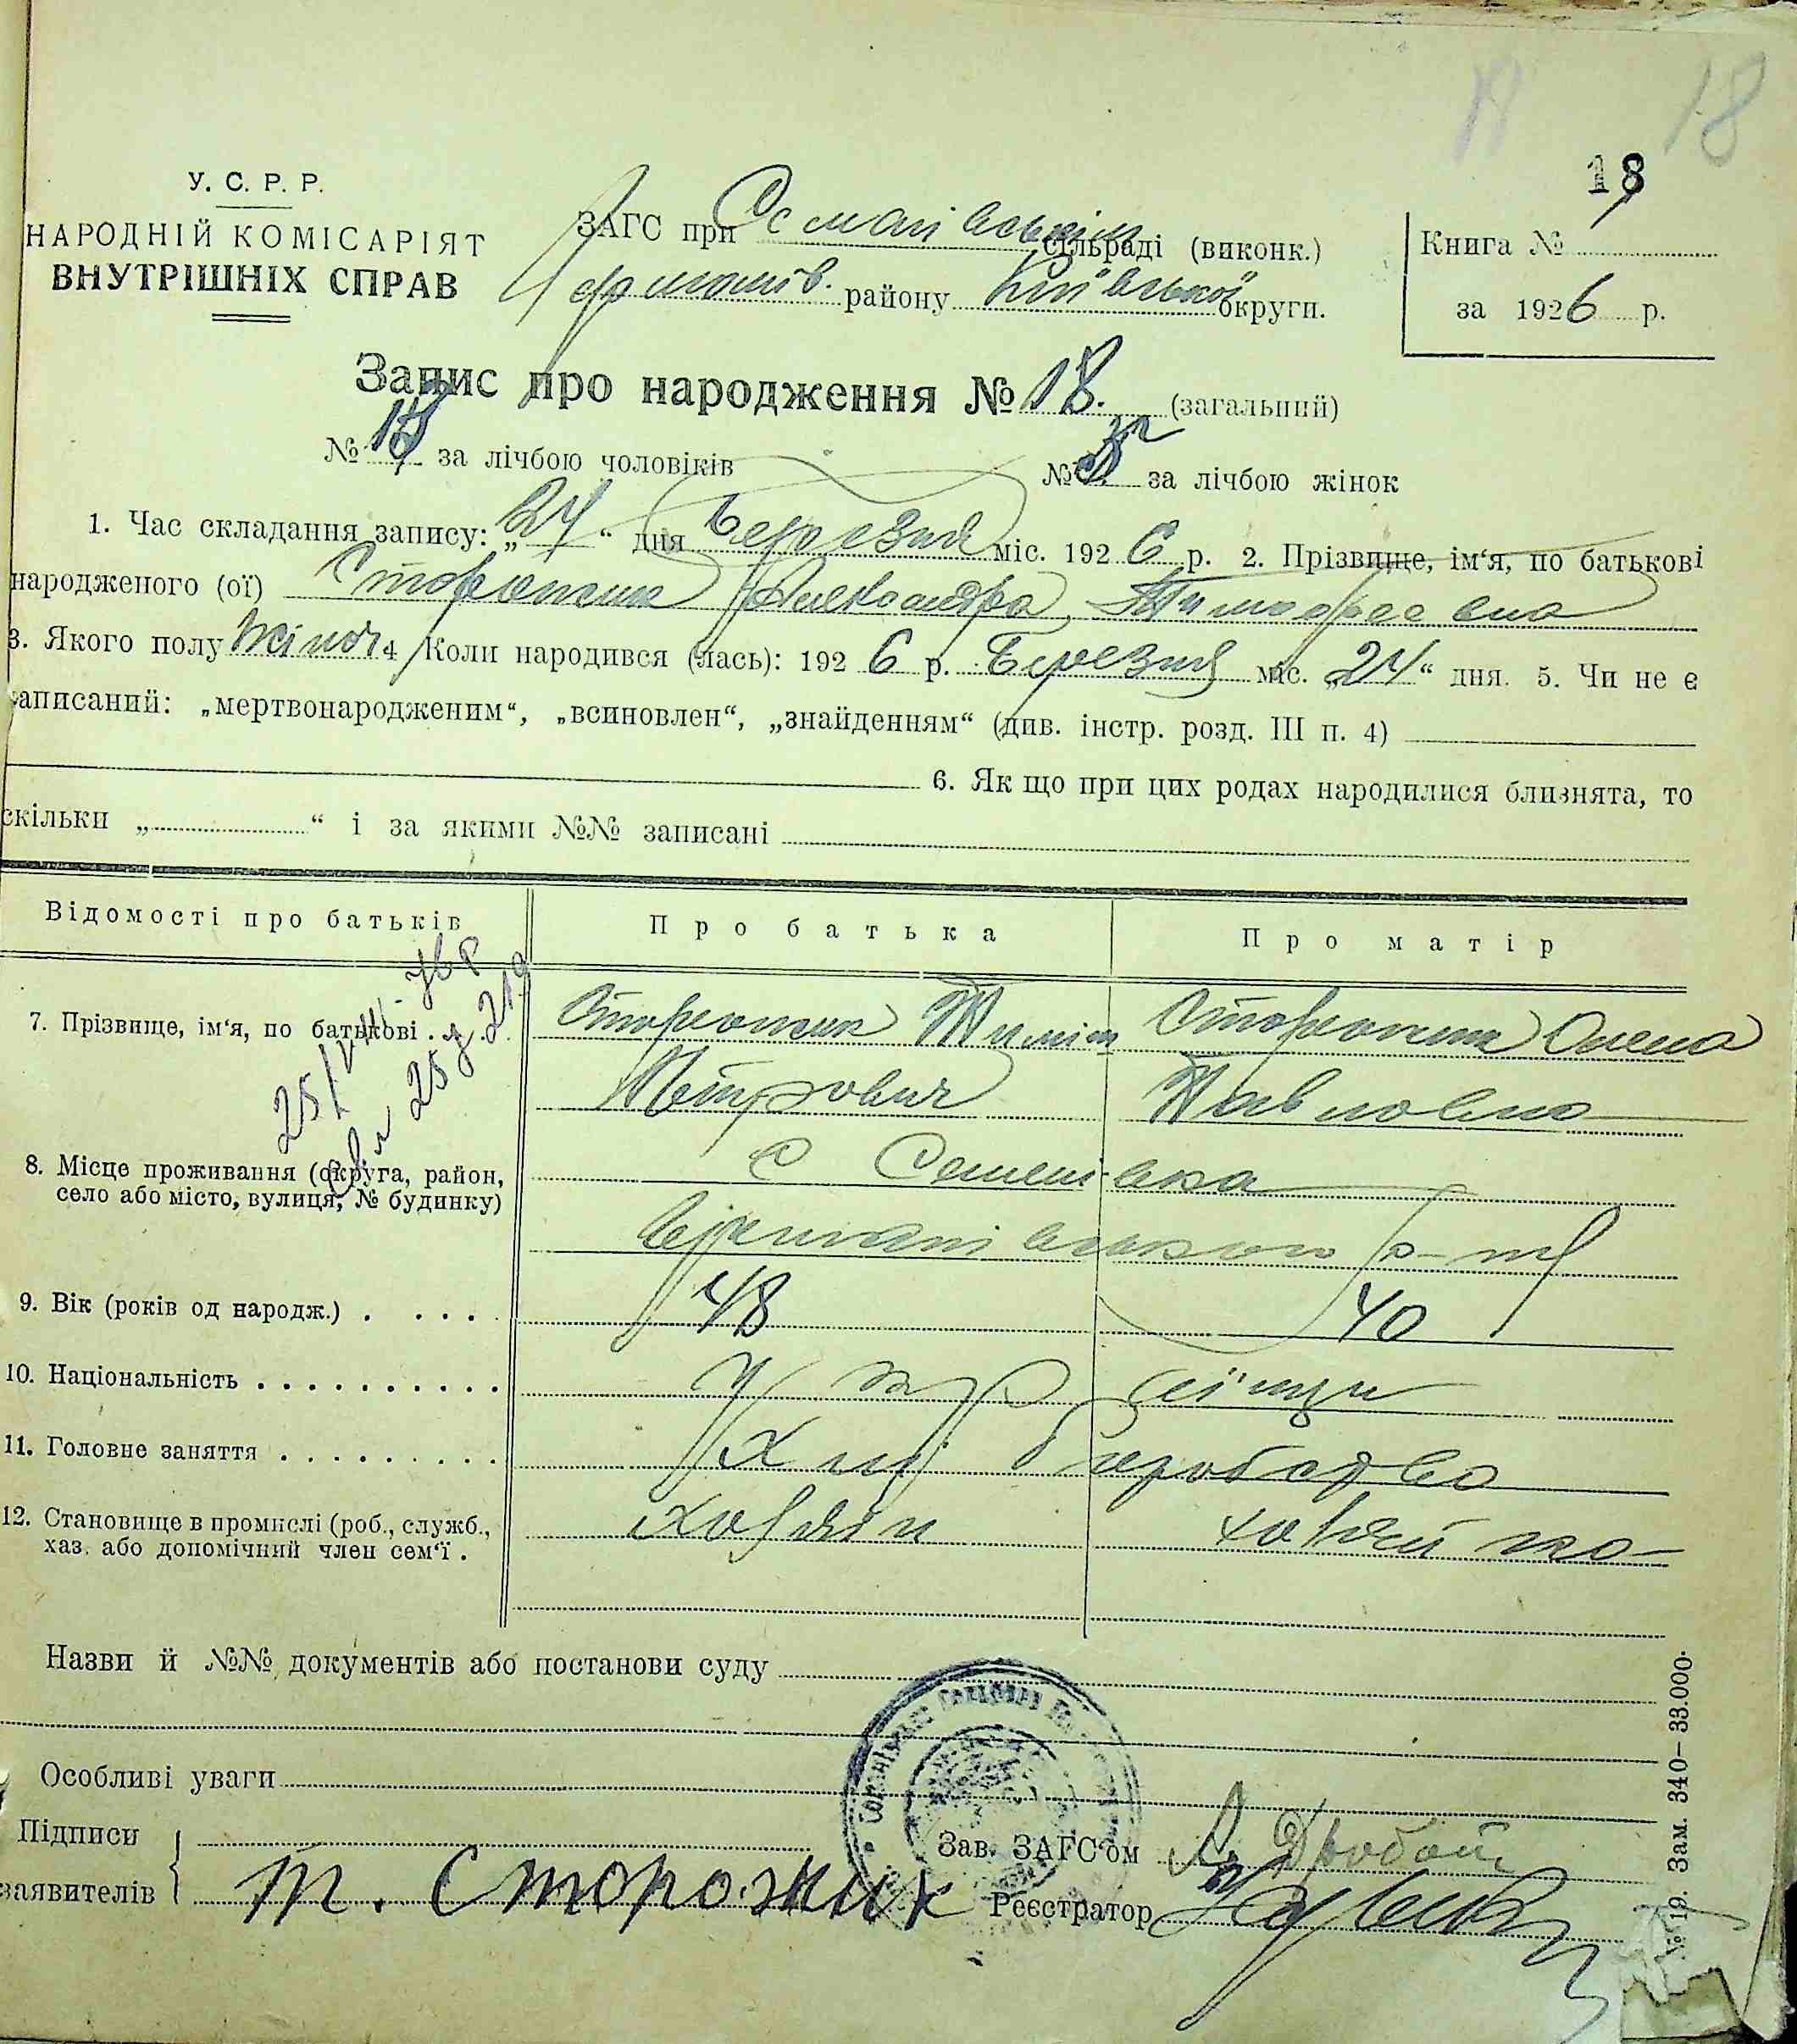 18
18
У. С. Р. Р.
НАРОДНІЙ КОМІСАРІЯТ
ВНУТРІШНІХ СПРАВ
ЗАГС при сільраді (виконк.)
району Київської округи.
Книга №
за 1926 р.
Запис про народження № 18. (загальний)
№ за лічбою чоловіків
№ за лічбою жінок
1. Час складання запису: „24“ дня Березня міс. 1926 р. 2. Прізвище, ім‘я, по батькові
народженого (ої) Сторожик Александра Тимофеевна
3. Якого полу жіноч. 4 Коли народився (лась): 1926 р. Березня міс. „24“ дня. 5. Чи не є
записаний: „мертвонародженим“, „всиновлен“, „знайденням“ (див. інстр. розд. III п. 4)
6. Як що при цих родах народилися близнята, то
скільки „ “ і за якими №№ записані
Відомості про батьків
Про батька
Про матір
7. Прізвище, ім‘я, по батькові
Сторожик Тиміш
Петрович
Сторожик Олена
Павловна
8. Місце проживання (округа, район,
село або місто, вулиця, № будинку)
с
9. Вік (років од народж.)
48
40
10. Національність
Українці
11. Головне заняття
Хліборобство
12. Становище в промислі (роб., служб.,
хаз. або допомічний член сем‘ї .
Хозяїн
хозяйка
Назви й №№ документів або постанови суду
Особливі уваги
Підписи
заявителів
т. Сторожик
Зав. ЗАГС‘ом
Реєстратор
№ 19. Зам. 340—33.000.